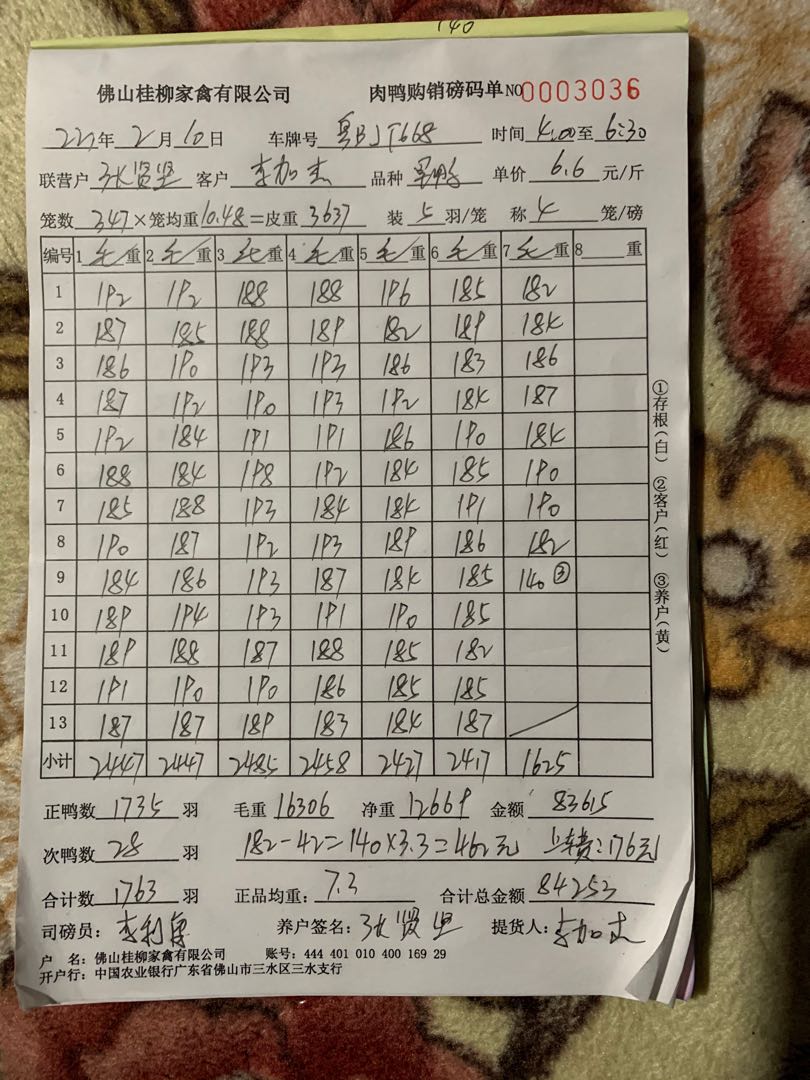 佛山桂柳家禽有限公司 肉鸭购销磅码单 NO 0003036
22年 2月 10日 车牌号 粤BJT668 时间 4:00至 6:30
联营户 张贤坚 客户 李加杰 品种 单价 6.6 元/斤
笼数 347 ×笼均重 10.48 =皮重 3637 装 5 羽/笼 称 4 笼/磅
编号 1 毛 重 2 毛 重 3 毛 重 4 毛 重 5 毛 重 6 毛 重 7 毛 重 8 重
1 192 192 188 188 196 185 182
2 187 185 188 189 182 189 184
3 186 190 193 193 186 183 186
4 187 192 190 193 192 184 187
5 192 184 191 191 186 190 184
6 188 184 198 192 184 185 190
7 185 188 193 184 184 191 190
8 190 187 192 193 189 186 182
9 184 186 193 187 184 185 140 ③
10 189 194 193 191 190 185
11 189 188 187 188 185 182
12 191 190 190 186 185 185
13 187 187 189 183 184 187
小计 2447 2447 2485 2458 2427 2417 1625
①存根(白) ②客户(红) ③养户(黄)
正鸭数 1735 羽 毛重 16306 净重 12669 金额 83615
次鸭数 28 羽 182-42=140×3.3=462元 上车费:176元
合计数 1763 羽 正品均重: 7.3 合计总金额 84253
司磅员: 养户签名: 张贤坚 提货人: 李加杰
户 名: 佛山桂柳家禽有限公司 账号: 444 401 010 400 169 29
开户行: 中国农业银行广东省佛山市三水区三水支行